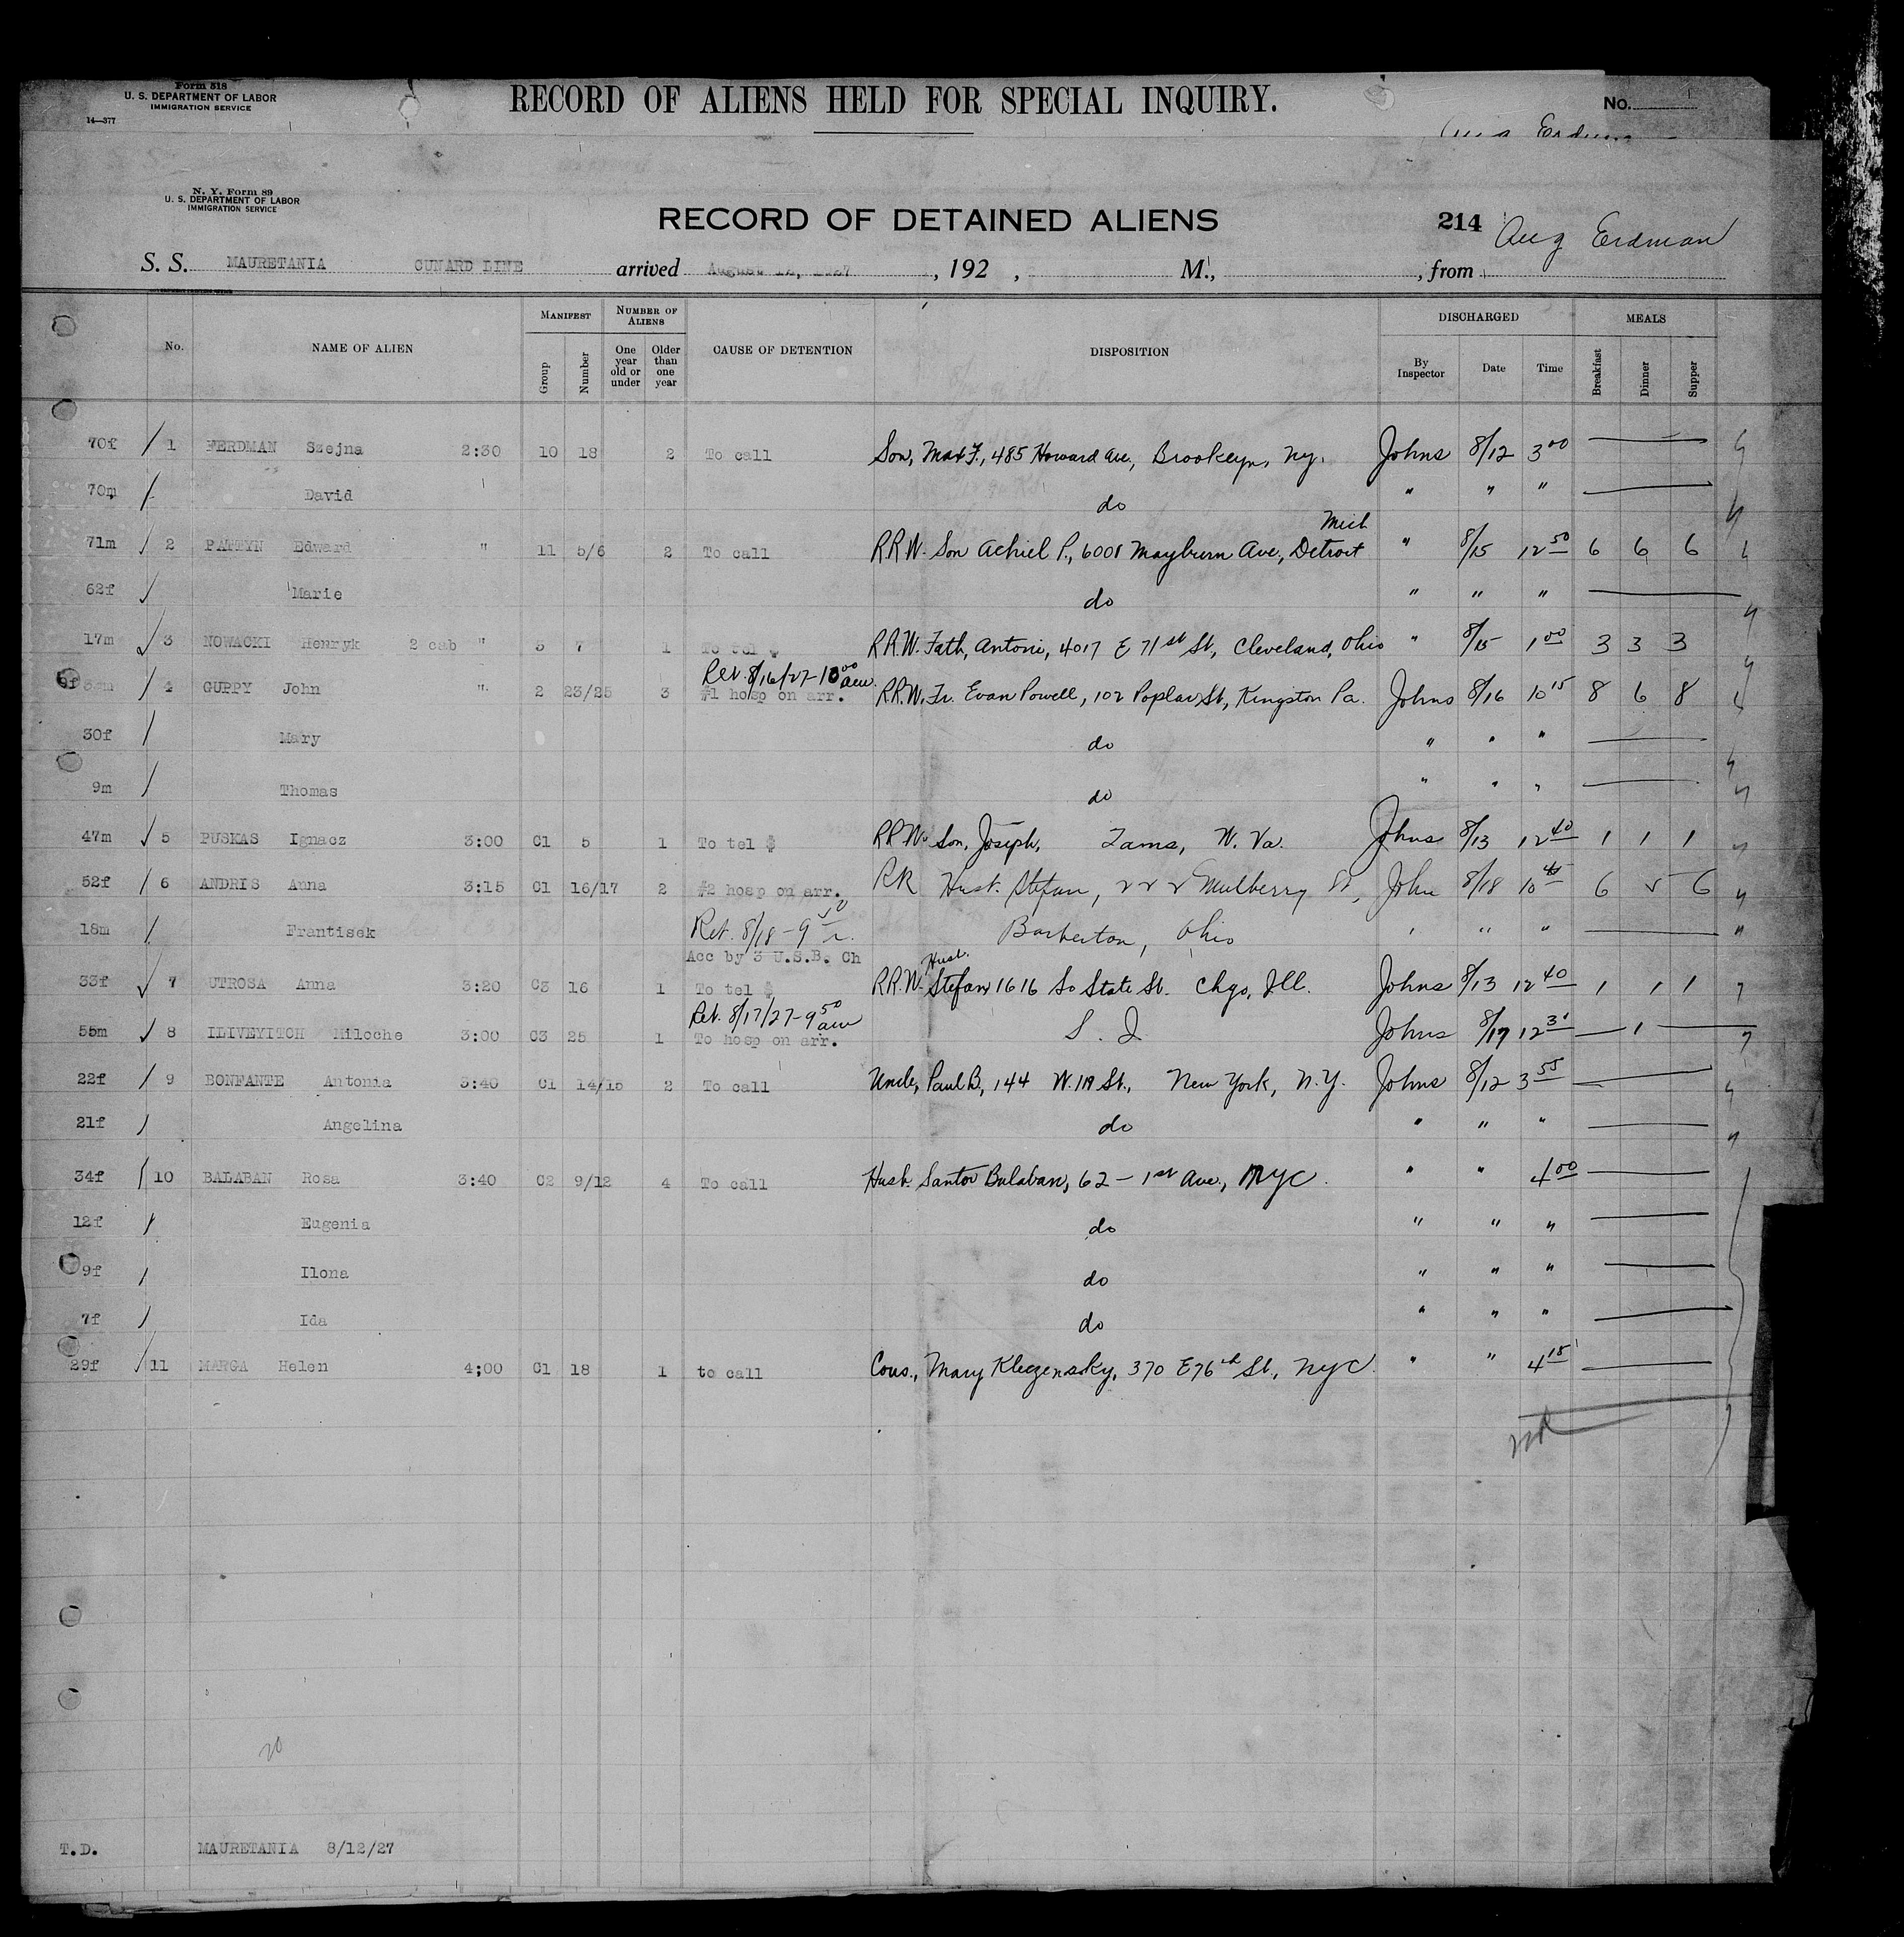 Form 518
U. S. DEPARTMENT OF LABOR
IMMIGRATION SERVICE
14—377
RECORD OF ALIENS HELD FOR SPECIAL INQUIRY.
No.
N. Y. Form 89
U. S. DEPARTMENT OF LABOR
IMMIGRATION SERVICE
RECORD OF DETAINED ALIENS
214 Aug Erdman
S. S. MAURETANIA CUNARD LINE arrived August 12, 1927, 192 , M., , from
No. NAME OF ALIEN MANIFEST Group Number NUMBER OF ALIENS One year old or under Older than one year CAUSE OF DETENTION DISPOSITION DISCHARGED By Inspector Date Time MEALS Breakfast Dinner Supper
70f / 1 FERDMAN Szejna 2:30 10 18 2 To call Son, Max F., 485 Howard Ave, Brooklyn, Ny. Johns 8/12 3 00
70m / David do " " "
Mich
71m ✓ 2 PATTYN Edward " 11 5/6 2 To call R.R.W. Son Achiel P., 6001 Mayburn Ave, Detroit " 8/15 12 50 6 6 6
62f ✓ Marie do " " "
17m ✓ 3 NOWACKI Henryk 2 cab " 3 7 1 To tel $ R.R.W. Fath, Antoni, 4017 E 71st St, Cleveland, Ohio " 8/15 1 00 3 3 3
Ret. 8/16/27-10 00 am.
/ 4 GUPPY John " 2 23/25 3 #1 hosp on arr. R.R.W. Fr. Evan Powell, 102 Poplar St, Kingston Pa. Johns 8/16 10 15 8 6 8
30f / Mary do " " "
9m / Thomas do " " "
47m ✓ 5 PUSKAS Ignacz 3:00 C1 5 1 To tel $ R.R.W. Son, Joseph, Tams, W. Va. Johns 8/13 12 40 1 1 1
52f / 6 ANDRIS Anna 3:15 C1 16/17 2 #2 hosp on arr. RR Husb. Stefan, 222 Mulberry St, John 8/18 10 45 6 5 6
18m / Frantisek Ret. 8/18-9 50 Barberton, Ohio " " "
Acc by 3 U.S.B. Ch
Husb.
33f ✓ 7 UTROSA Anna 3:20 C3 16 1 To tel $ R.R.W. Stefan 1616 So State St. Chgo, Ill. Johns 8/13 12 40 1 1 1
Ret. 8/17/27-9 50 am
55m ✓ 8 ILIVEYITCH Miloche 3:00 C3 25 1 To hosp on arr. S. I Johns 8/17 12 31 1
22f / 9 BONFANTE Antonia 3:40 C1 14/15 2 To call Uncle, Paul B, 144 W. 119 St., New York, N.Y. Johns 8/12 3 55
21f / Angelina do " " "
34f / 10 BALABAN Rosa 3:40 C2 9/12 4 To call Husb. Santov Balaban, 62 - 1st Ave., NYC. " " 4 00
12f / Eugenia do " " "
9f / Ilona do " " "
7f / Ida do " " "
29f / 11 MARGA Helen 4;00 C1 18 1 to call Cous., Mary Kleczenasky, 370 E 76th St., NYC. " " 4 15
T.D. MAURETANIA 8/12/27